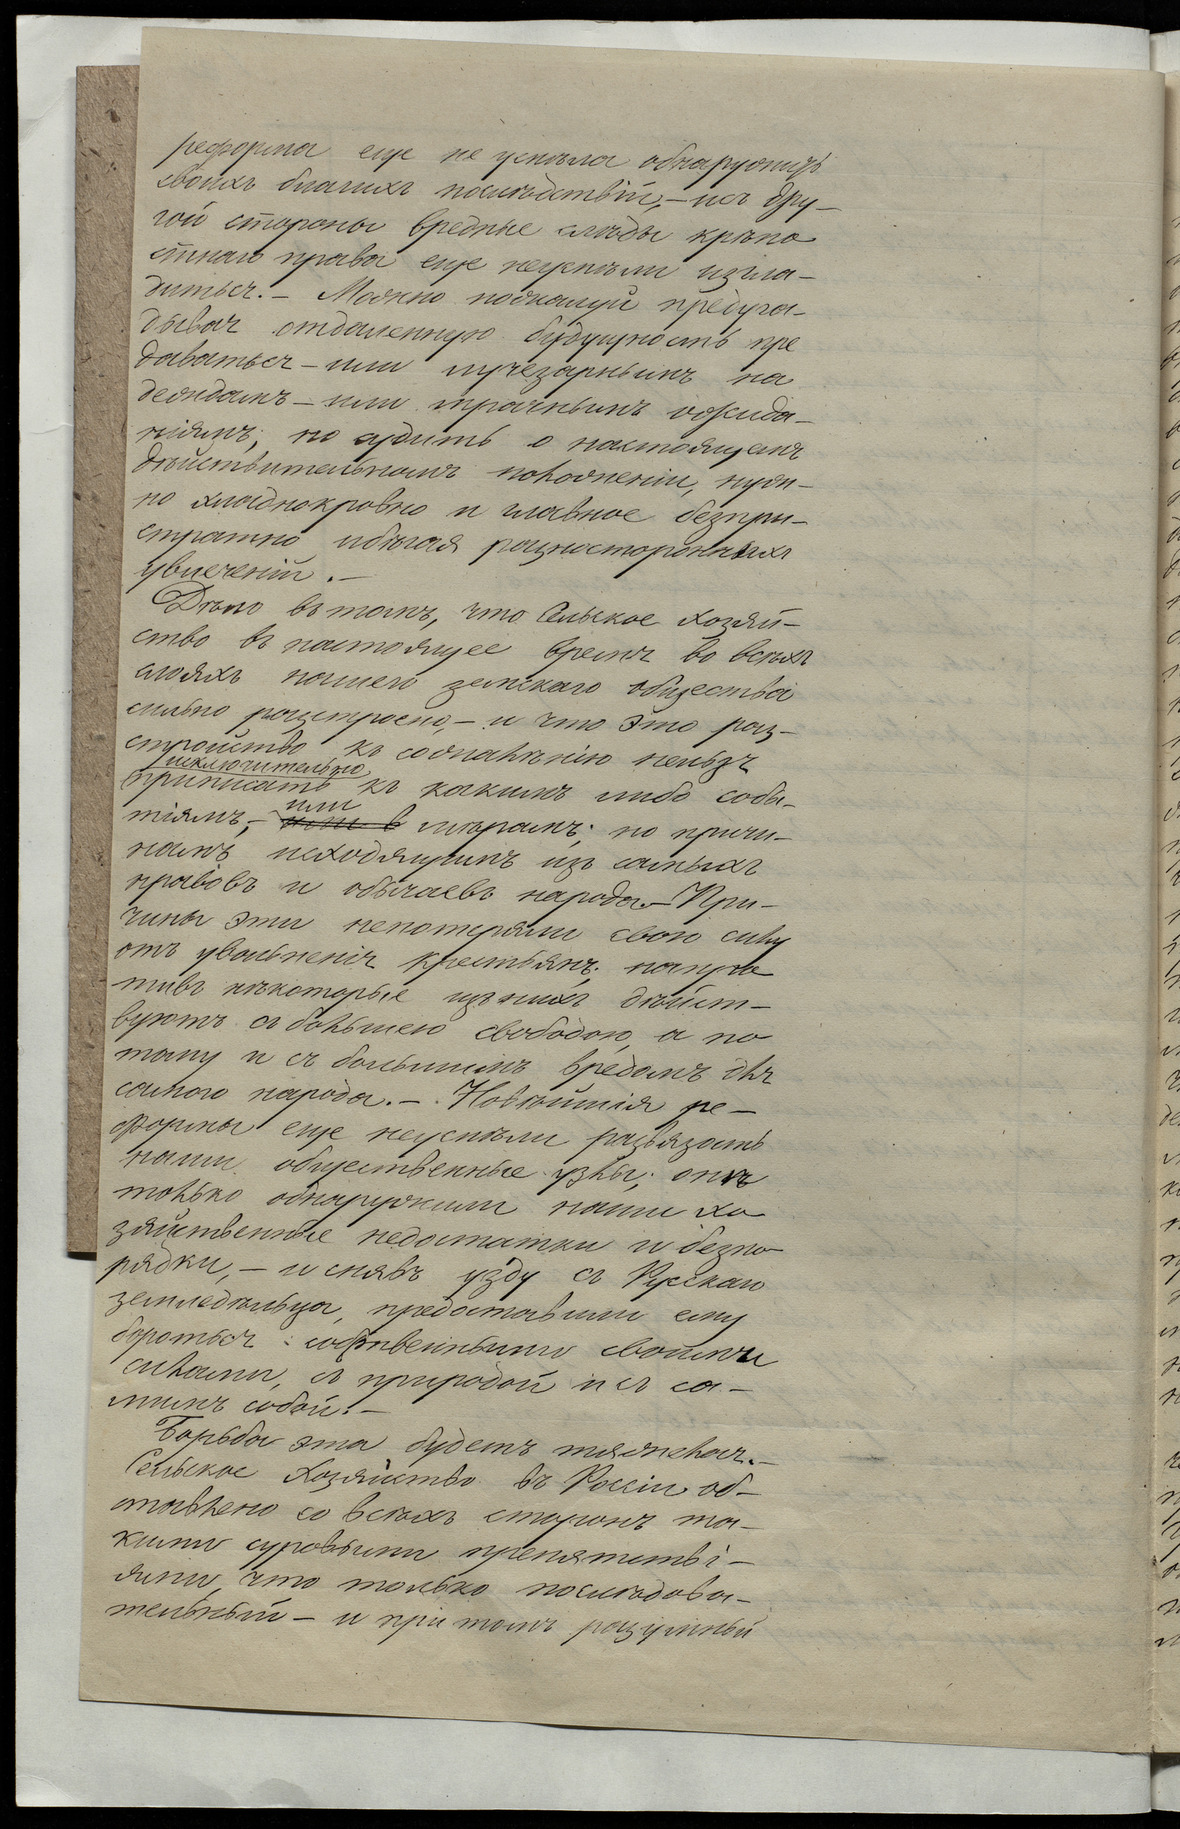 реформа еще не успѣла обнаружить
своихъ благихъ послѣдствій, – и съ дру–
гой стороны вредные слѣды крѣпо
стнаго права еще неуспѣли изгла–
диться. – Можно пожалуй предуга–
дывая отдаленную будущность пре
даваться – или лучезарнымъ на
деждамъ – или мрачнымъ ожида–
ніямъ; но судить о настоящемъ
дѣйствительномъ положеніи, нуж–
но хладнокровно и главное безпри–
страстно избѣгая разностороннихъ
увлеченій. –
Дѣло въ томъ, что Сельское хозяй–
ство въ настоящее время во всѣхъ
слояхъ нашего земскаго общества
сильно разстроено, – и что это раз–
стройство къ сожалѣнію нельзя
исключительно
приписать къ какимъ либо собы–
или
тіямъ, – мѣрамъ; но причи–
намъ исходящимъ изъ самыхъ
нравовъ и обычаевъ народа. – При–
чины эти непотеряли свою силу
отъ увольненія крестьянъ; напро
тивъ нѣкоторые изъ нихъ дѣйст–
вуютъ съ большею свободою, а по
тому и съ большимъ вредомъ для
самого народа. – Новѣйшія ре–
формы еще неуспѣли развязать
наши общественные узлы; онѣ
только обнаружили наши хо
зяйственные недостатки и безпо–
рядки, – и снявъ узду съ Русскаго
земледѣльца, предоставили ему
бороться собственными своими
силами, съ природой и съ са–
мимъ собой. –
Борьба эта будетъ тяжелая. –
Сельское Хозяйство въ Россіи об–
ставлено со всѣхъ сторонъ та–
кими суровыми препятстві–
ями, что только послѣдова–
тельный – и при томъ разумный